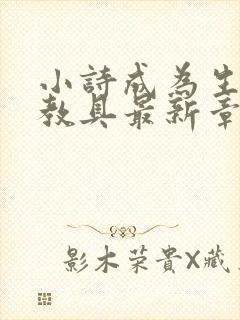 小詩成為生
教具最新章
影木荣貴X藏